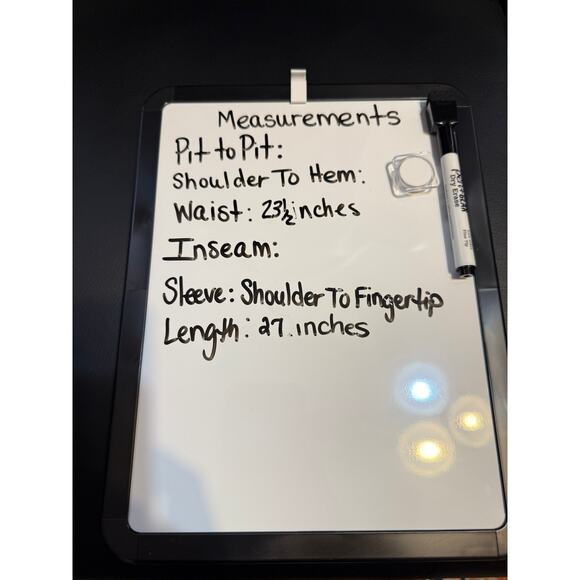 Measurements
Pit to Pit:
Shoulder To Hem:
Waist: 23½ inches
Inseam:
Sleeve: Shoulder To Fingertip
Length: 27 inches
Dry Erase